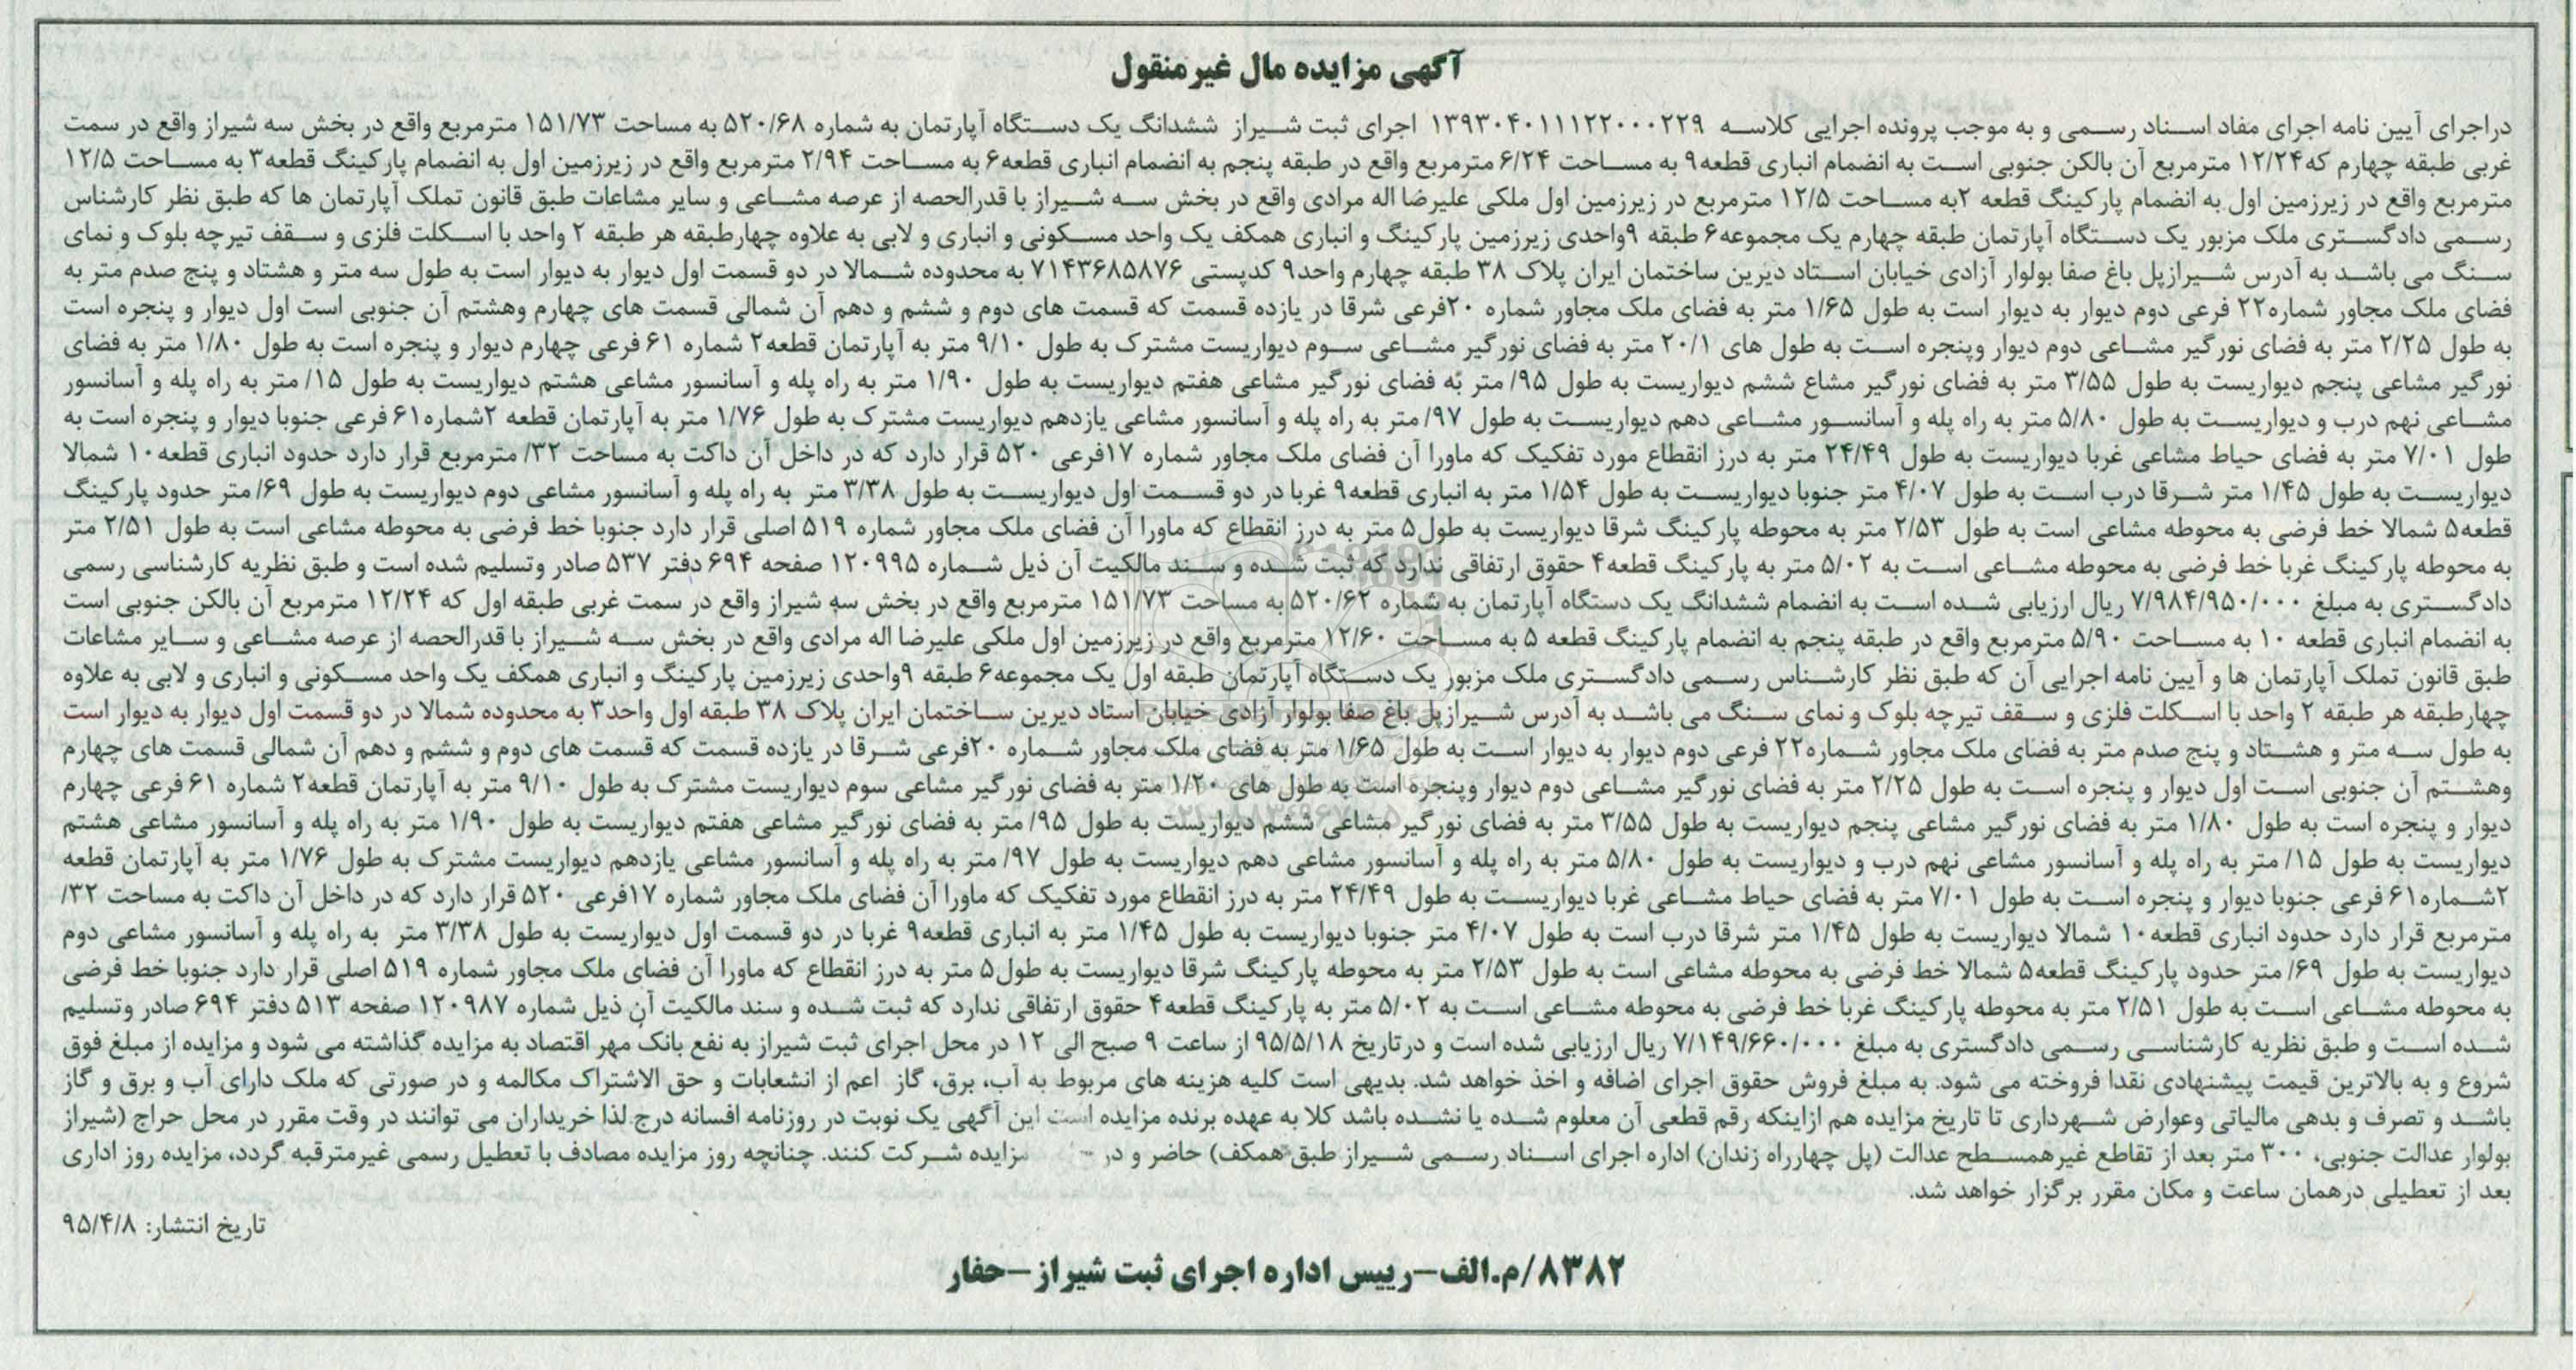 آگهی مزایده مال غیرمنقول
دراجرای آیین نامه اجرای مفاد اسناد رسمی و به موجب پرونده اجرایی کلاسه ۱۳۹۳۰۴۰۱۱۱۲۲۰۰۰۲۲۹ اجرای ثبت شیراز ششدانگ یک دستگاه آپارتمان به شماره ۵۲۰/۶۸ به مساحت ۱۵۱/۷۳ مترمربع واقع در بخش سه شیراز واقع در سمت
غربی طبقه چهارم که۱۲/۲۴ مترمربع آن بالکن جنوبی است به انضمام انباری قطعه۹ به مساحت ۶/۲۴ مترمربع واقع در طبقه پنجم به انضمام انباری قطعه۶ به مساحت ۲/۹۴ مترمربع واقع در زیرزمین اول به انضمام پارکینگ قطعه۳ به مساحت ۱۲/۵
مترمربع واقع در زیرزمین اول به انضمام پارکینگ قطعه ۲به مساحت ۱۲/۵ مترمربع در زیرزمین اول ملکی علیرضا اله مرادی واقع در بخش سه شیراز با قدرالحصه از عرصه مشاعی و سایر مشاعات طبق قانون تملک آپارتمان ها که طبق نظر کارشناس
رسمی دادگستری ملک مزبور یک دستگاه آپارتمان طبقه چهارم یک مجموعه۶ طبقه ۹واحدی زیرزمین پارکینگ و انباری همکف یک واحد مسکونی و انباری و لابی به علاوه چهارطبقه هر طبقه ۲ واحد با اسکلت فلزی و سقف تیرچه بلوک و نمای
سنگ می باشد به آدرس شیرازپل باغ صفا بولوار آزادی خیابان استاد دیرین ساختمان ایران پلاک ۳۸ طبقه چهارم واحد۹ کدپستی ۷۱۴۳۶۸۵۸۷۶ به محدوده شمالا در دو قسمت اول دیوار به دیوار است به طول سه متر و هشتاد و پنج صدم متر به
فضای ملک مجاور شماره۲۲ فرعی دوم دیوار به دیوار است به طول ۱/۶۵ متر به فضای ملک مجاور شماره ۲۰فرعی شرقا در یازده قسمت که قسمت های دوم و ششم و دهم آن شمالی قسمت های چهارم وهشتم آن جنوبی است اول دیوار و پنجره است
به طول ۲/۲۵ متر به فضای نورگیر مشاعی دوم دیوار وپنجره است به طول های ۲۰/۱ متر به فضای نورگیر مشاعی سوم دیواریست مشترک به طول ۹/۱۰ متر به آپارتمان قطعه۲ شماره ۶۱ فرعی چهارم دیوار و پنجره است به طول ۱/۸۰ متر به فضای
نورگیر مشاعی پنجم دیواریست به طول ۳/۵۵ متر به فضای نورگیر مشاع ششم دیواریست به طول ۹۵/ متر به فضای نورگیر مشاعی هفتم دیواریست به طول ۱/۹۰ متر به راه پله و آسانسور مشاعی هشتم دیواریست به طول ۱۵/ متر به راه پله و آسانسور
مشاعی نهم درب و دیواریست به طول ۵/۸۰ متر به راه پله و آسانسور مشاعی دهم دیواریست به طول ۹۷/ متر به راه پله و آسانسور مشاعی یازدهم دیواریست مشترک به طول ۱/۷۶ متر به آپارتمان قطعه ۲شماره۶۱ فرعی جنوبا دیوار و پنجره است به
طول ۷/۰۱ متر به فضای حیاط مشاعی غربا دیواریست به طول ۲۴/۴۹ متر به درز انقطاع مورد تفکیک که ماورا آن فضای ملک مجاور شماره ۱۷فرعی ۵۲۰ قرار دارد که در داخل آن داکت به مساحت ۳۲/ مترمربع قرار دارد حدود انباری قطعه۱۰ شمالا
دیواریست به طول ۱/۴۵ متر شرقا درب است به طول ۴/۰۷ متر جنوبا دیواریست به طول ۱/۵۴ متر به انباری قطعه۹ غربا در دو قسمت اول دیواریست به طول ۳/۳۸ متر به راه پله و آسانسور مشاعی دوم دیواریست به طول ۶۹/ متر حدود پارکینگ
قطعه۵ شمالا خط فرضی به محوطه مشاعی است به طول ۲/۵۳ متر به محوطه پارکینگ شرقا دیواریست به طول۵ متر به درز انقطاع که ماورا آن فضای ملک مجاور شماره ۵۱۹ اصلی قرار دارد جنوبا خط فرضی به محوطه مشاعی است به طول ۲/۵۱ متر
به محوطه پارکینگ غربا خط فرضی به محوطه مشاعی است به ۵/۰۲ متر به پارکینگ قطعه۴ حقوق ارتفاقی ندارد که ثبت شده و سند مالکیت آن ذیل شماره ۱۲۰۹۹۵ صفحه ۶۹۴ دفتر ۵۳۷ صادر وتسلیم شده است و طبق نظریه کارشناسی رسمی
دادگستری به مبلغ ۷/۹۸۴/۹۵۰/۰۰۰ ریال ارزیابی شده است به انضمام ششدانگ یک دستگاه آپارتمان به شماره ۵۲۰/۶۲ به مساحت ۱۵۱/۷۳ مترمربع واقع در بخش سه شیراز واقع در سمت غربی طبقه اول که ۱۲/۲۴ مترمربع آن بالکن جنوبی است
به انضمام انباری قطعه ۱۰ به مساحت ۵/۹۰ مترمربع واقع در طبقه پنجم به انضمام پارکینگ قطعه ۵ به مساحت ۱۲/۶۰ مترمربع واقع در زیرزمین اول ملکی علیرضا اله مرادی واقع در بخش سه شیراز با قدرالحصه از عرصه مشاعی و سایر مشاعات
طبق قانون تملک آپارتمان ها و آیین نامه اجرایی آن که طبق نظر کارشناس رسمی دادگستری ملک مزبور یک دستگاه آپارتمان طبقه اول یک مجموعه۶ طبقه ۹واحدی زیرزمین پارکینگ و انباری همکف یک واحد مسکونی و انباری و لابی به علاوه
چهارطبقه هر طبقه ۲ واحد با اسکلت فلزی و سقف تیرچه بلوک و نمای سنگ می باشد به آدرس شیرازپل باغ صفا بولوار آزادی خیابان استاد دیرین ساختمان ایران پلاک ۳۸ طبقه اول واحد۳ به محدوده شمالا در دو قسمت اول دیوار به دیوار است
به طول سه متر و هشتاد و پنج صدم متر به فضای ملک مجاور شماره۲۲ فرعی دوم دیوار به دیوار است به طول ۱/۶۵ متر به فضای ملک مجاور شماره ۲۰فرعی شرقا در یازده قسمت که قسمت های دوم و ششم و دهم آن شمالی قسمت های چهارم
وهشتم آن جنوبی است اول دیوار و پنجره است به طول ۲/۲۵ متر به فضای نورگیر مشاعی دوم دیوار وپنجره است به طول های ۱/۲۰ متر به فضای نورگیر مشاعی سوم دیواریست مشترک به طول ۹/۱۰ متر به آپارتمان قطعه۲ شماره ۶۱ فرعی چهارم
دیوار و پنجره است به طول ۱/۸۰ متر به فضای نورگیر مشاعی پنجم دیواریست به طول ۳/۵۵ متر به فضای نورگیر مشاعی ششم دیواریست به طول ۹۵/ متر به فضای نورگیر مشاعی هفتم دیواریست به طول ۱/۹۰ متر به راه پله و آسانسور مشاعی هشتم
دیواریست به طول ۱۵/ متر به راه پله و آسانسور مشاعی نهم درب و دیواریست به طول ۵/۸۰ متر به راه پله و آسانسور مشاعی دهم دیواریست به طول ۹۷/ متر به راه پله و آسانسور مشاعی یازدهم دیواریست مشترک به طول ۱/۷۶ متر به آپارتمان قطعه
۲شماره۶۱ فرعی جنوبا دیوار و پنجره است به طول ۷/۰۱ متر به فضای حیاط مشاعی غربا دیواریست به طول ۲۴/۴۹ متر به درز انقطاع مورد تفکیک که ماورا آن فضای ملک مجاور شماره ۱۷فرعی ۵۲۰ قرار دارد که در داخل آن داکت به مساحت ۳۲/
مترمربع قرار دارد حدود انباری قطعه۱۰ شمالا دیواریست به طول ۱/۴۵ متر شرقا درب است به طول ۴/۰۷ متر جنوبا دیواریست به طول ۱/۴۵ متر به انباری قطعه۹ غربا در دو قسمت اول دیواریست به طول ۳/۳۸ متر به راه پله و آسانسور مشاعی دوم
دیواریست به طول ۶۹/ متر حدود پارکینگ قطعه۵ شمالا خط فرضی به محوطه مشاعی است به طول ۲/۵۳ متر به محوطه پارکینگ شرقا دیواریست به طول۵ متر به درز انقطاع که ماورا آن فضای ملک مجاور شماره ۵۱۹ اصلی قرار دارد جنوبا خط فرضی
به محوطه مشاعی است به طول ۲/۵۱ متر به محوطه پارکینگ غربا خط فرضی به محوطه مشاعی است به ۵/۰۲ متر به پارکینگ قطعه۴ حقوق ارتفاقی ندارد که ثبت شده و سند مالکیت آن ذیل شماره ۱۲۰۹۸۷ صفحه ۵۱۳ دفتر ۶۹۴ صادر وتسلیم
شده است و طبق نظریه کارشناسی رسمی دادگستری به مبلغ ۷/۱۴۹/۶۶۰/۰۰۰ ریال ارزیابی شده است و درتاریخ ۹۵/۵/۱۸ از ساعت ۹ صبح الی ۱۲ در محل اجرای ثبت شیراز به نفع بانک مهر اقتصاد به مزایده گذاشته می شود و مزایده از مبلغ فوق
شروع و به بالاترین قیمت پیشنهادی نقدا فروخته می شود. به مبلغ فروش حقوق اجرای اضافه و اخذ خواهد شد. بدیهی است کلیه هزینه های مربوط به آب، برق، گاز اعم از انشعابات و حق الاشتراک مکالمه و در صورتی که ملک دارای آب و برق و گاز
باشد و تصرف و بدهی مالیاتی وعوارض شهرداری تا تاریخ مزایده هم ازاینکه رقم قطعی آن معلوم شده یا نشده باشد کلا به عهده برنده مزایده است این آگهی یک نوبت در روزنامه افسانه درج.لذا خریداران می توانند در وقت مقرر در محل حراج (شیراز
بولوار عدالت جنوبی، ۳۰۰ متر بعد از تقاطع غیرهمسطح عدالت (پل چهارراه زندان) اداره اجرای اسناد رسمی شیراز طبق همکف) حاضر و در مزایده شرکت کنند. چنانچه روز مزایده مصادف با تعطیل رسمی غیرمترقبه گردد، مزایده روز اداری
بعد از تعطیلی درهمان ساعت و مکان مقرر برگزار خواهد شد.
تاریخ انتشار: ۹۵/۴/۸
۸۳۸۲/م.الف-رییس اداره اجرای ثبت شیراز-حفار